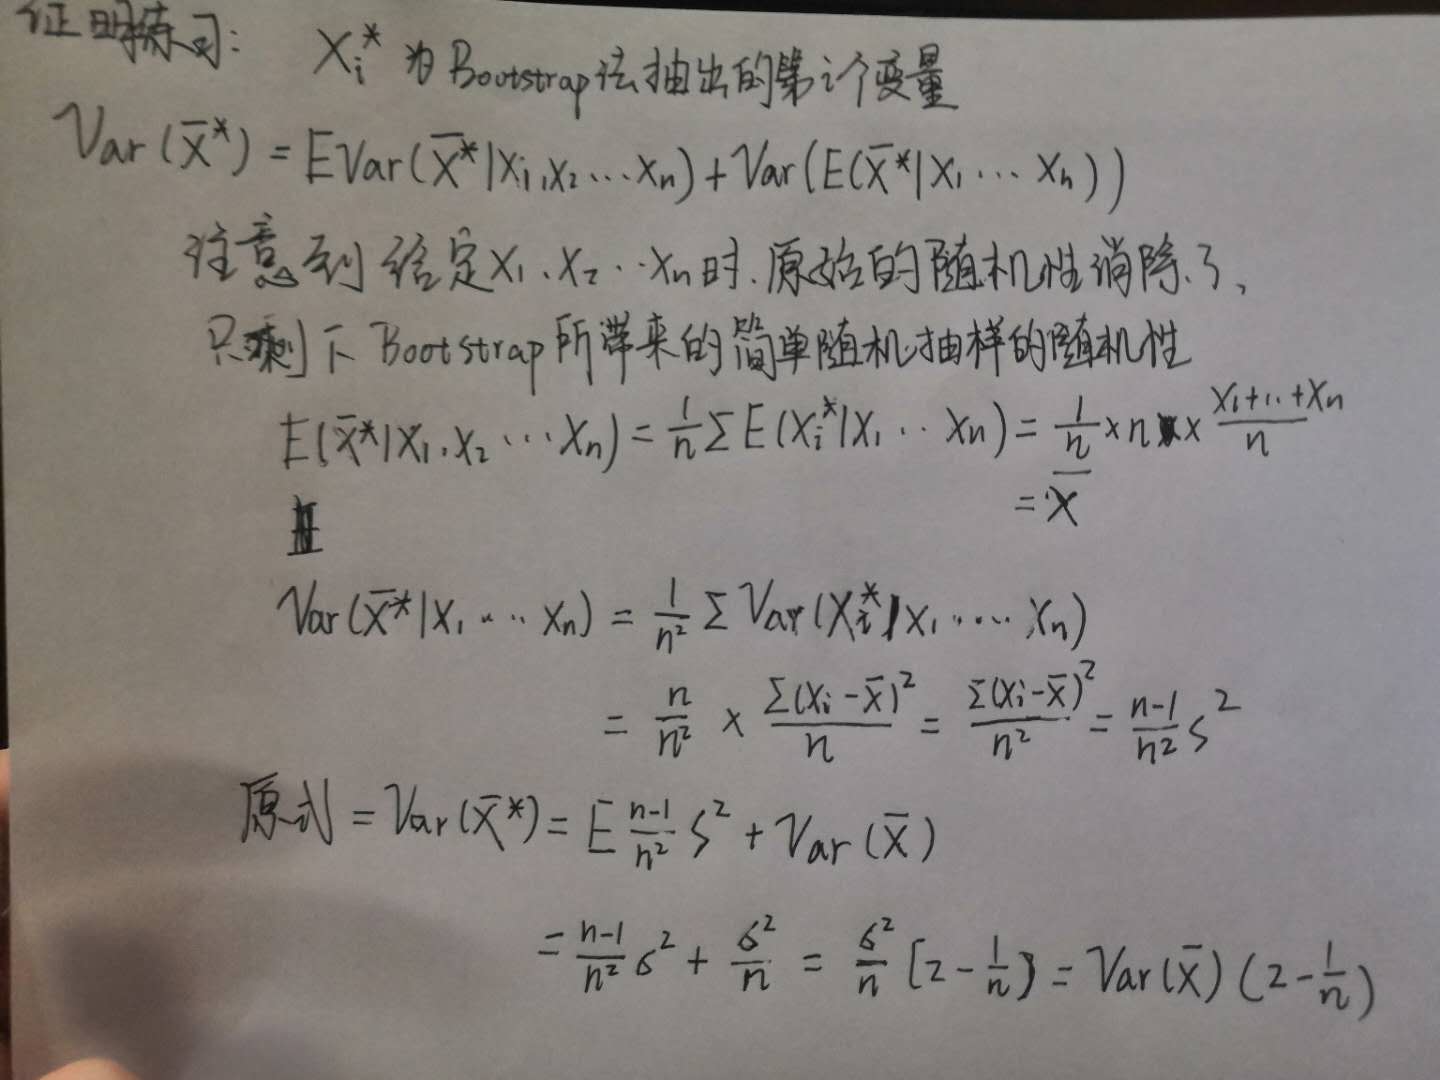 证明练习: Xᵢ* 为Bootstrap法抽出的第i个变量
Var(X̄*) = EVar(X̄*|X₁,X₂...Xₙ)+Var(E(X̄*|X₁...Xₙ))
注意到给定X₁、X₂...Xₙ时.原始的随机性消除了、
只剩下Bootstrap所带来的简单随机抽样的随机性
E(X̄*|X₁.X₂...Xₙ)= 1/n ΣE(Xᵢ*|X₁..Xₙ)= 1/n ×n × (X₁+...+Xₙ)/n
= X̄
Var(X̄*|X₁....Xₙ) = 1/n² ΣVar(Xᵢ*|X₁.....Xₙ)
= n/n² × Σ(Xᵢ-X̄)²/n = Σ(Xᵢ-X̄)²/n² = (n-1)/n² S²
原式 = Var(X̄*)= E (n-1)/n² S² + Var(X̄)
= (n-1)/n² σ² + σ²/n = σ²/n [2-1/n] = Var(X̄)(2-1/n)